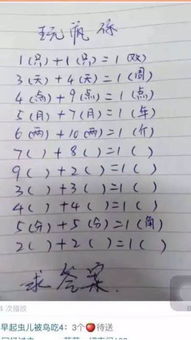 玩疯你
1(只)+1(只)=1(双)
3(天)+4(天)=1(周)
4(点)+9(点)=1(点)
5(月)+7(月)=1(年)
6(两)+10(两)=1(斤)
7( )+8( )=1( )
9( )+2( )=1( )
3( )+3( )=1( )
4( )+4( )=1( )
5(分)+5(分)=1(角)
2( )+2( )=1( )
求答案.
4 次播放
早起虫儿被鸟吃4：3个 待送